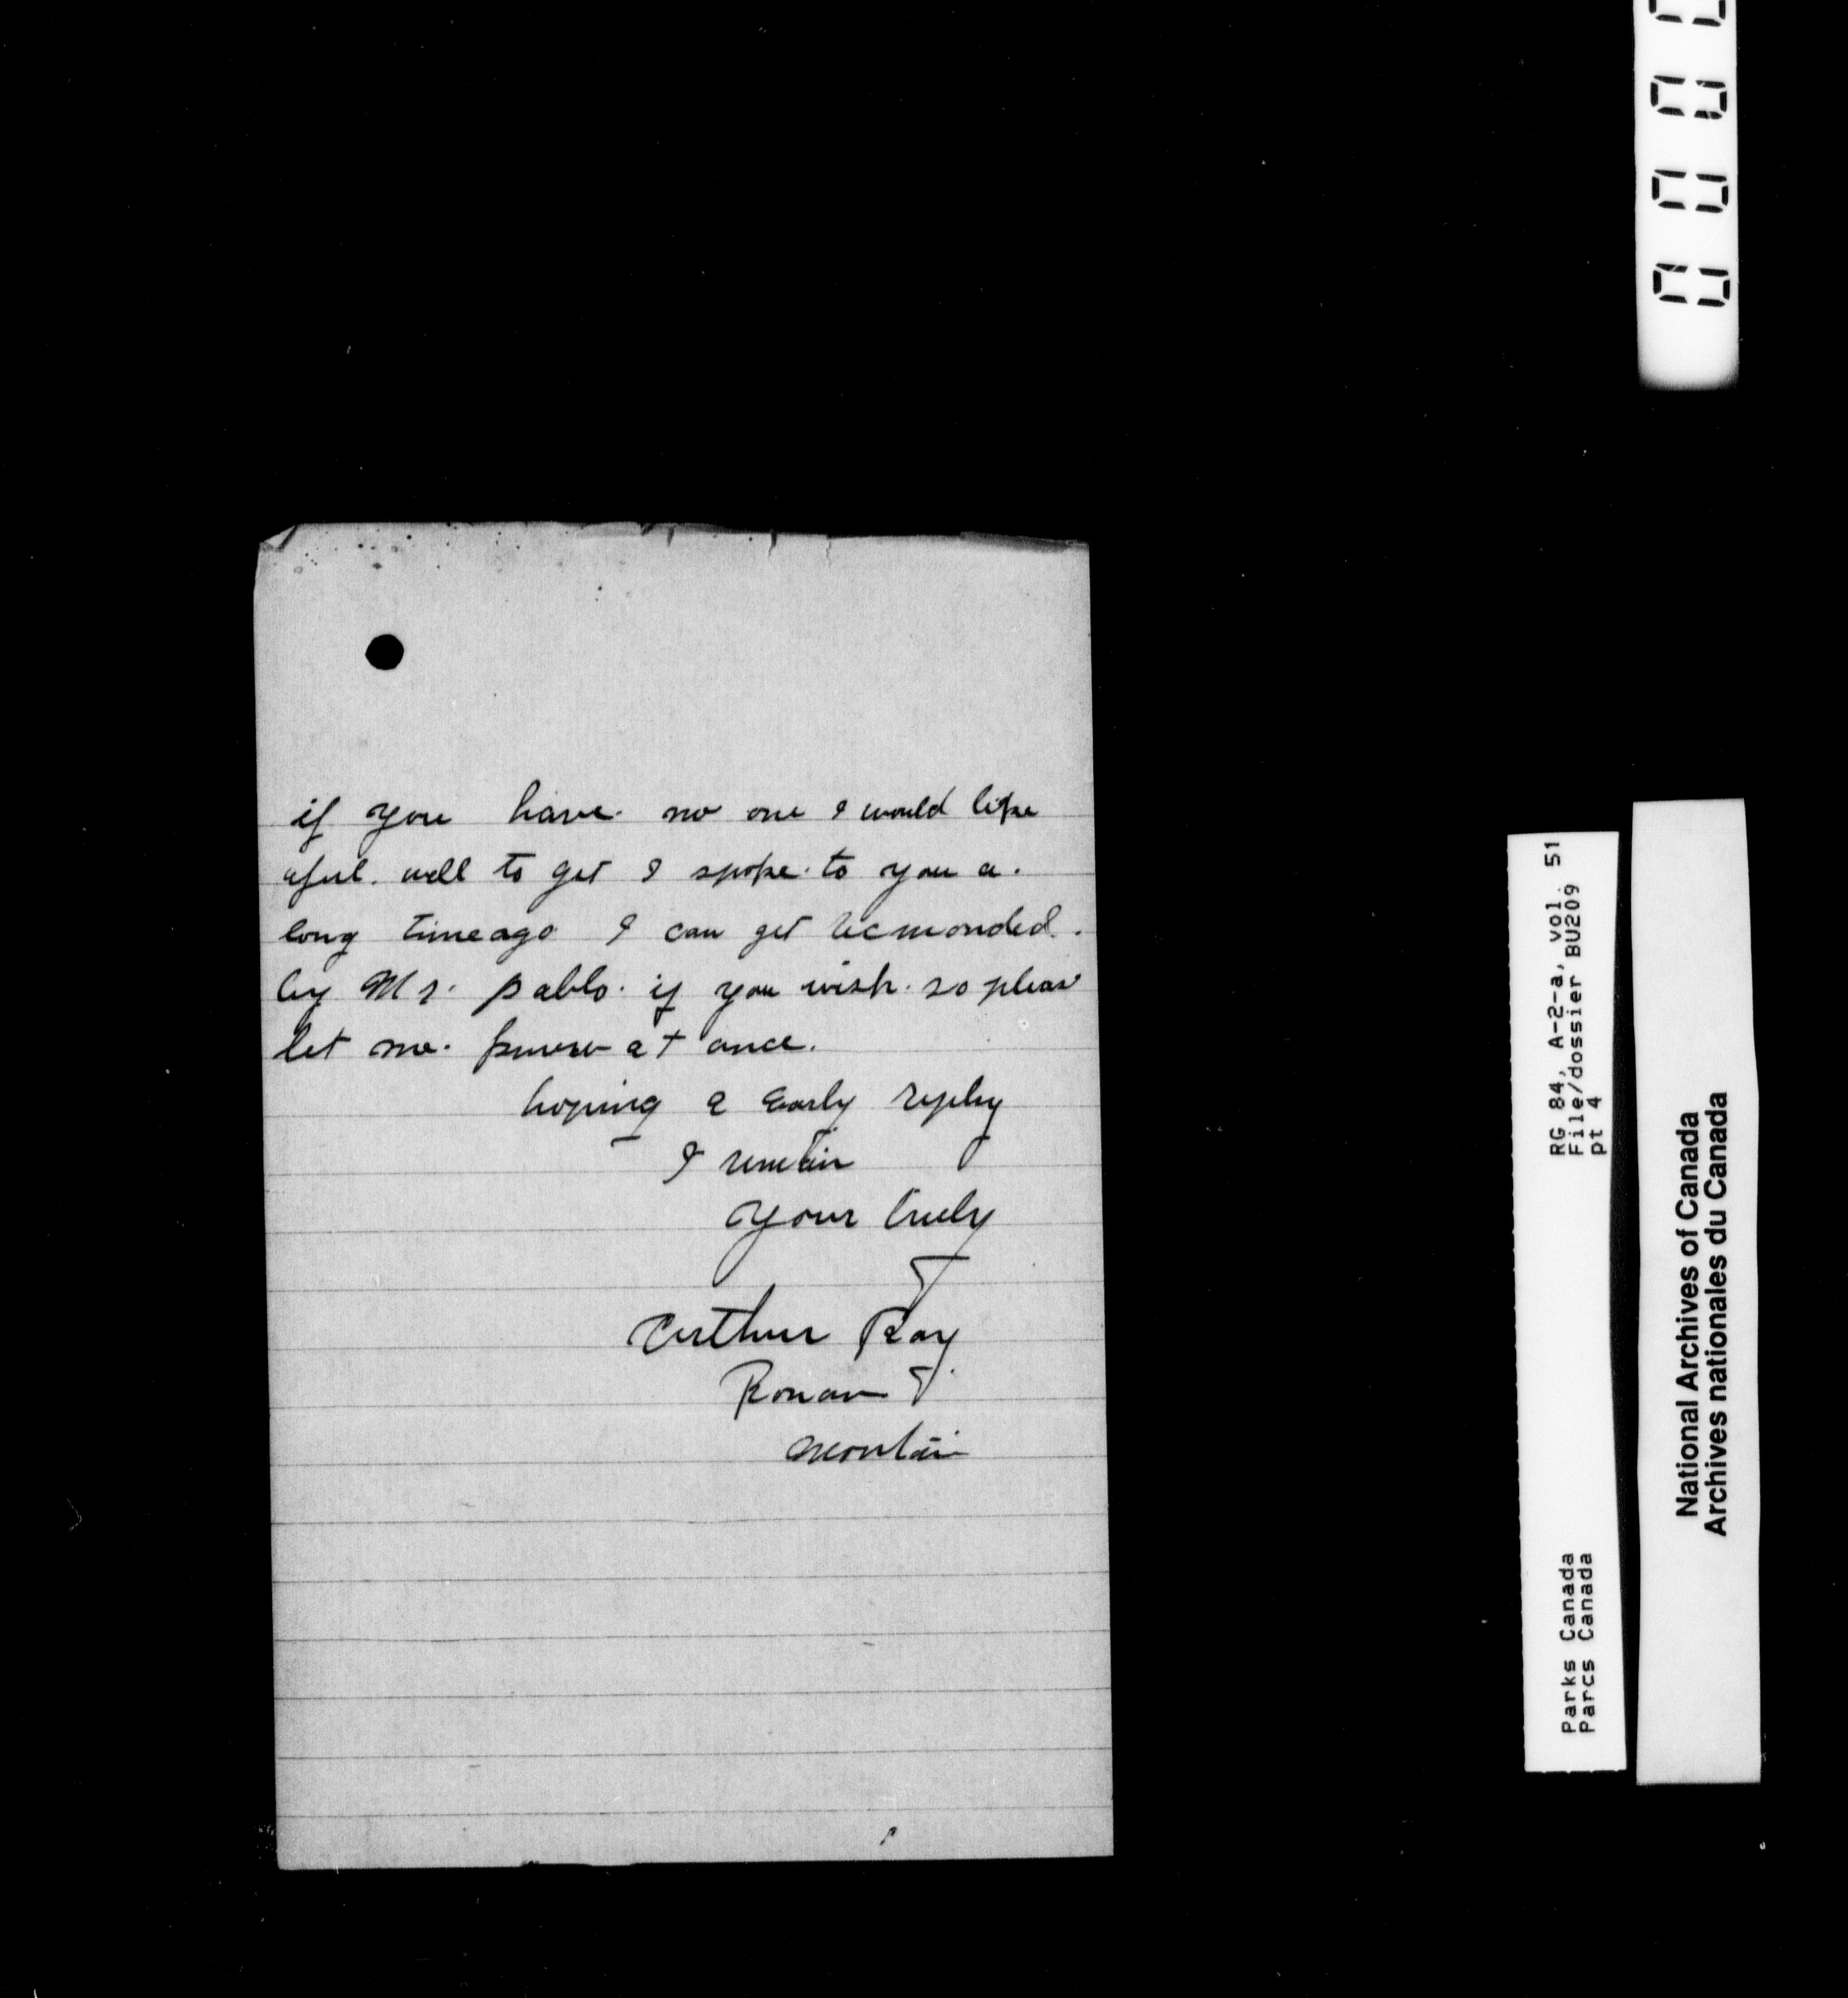 if you have no one I would like
aful. well to get I spoke to you a.
long time ago I can get recmonded.
by Mr. pablo. if you wish. so pleas
let me. know at once.
hoping a Early reply
I remain
your truly
Arthur Ray
Ronan
Montain
RG 84, A-2-a, vol. 51
File/dossier BU209
pt 4
Parks Canada
Parcs Canada
National Archives of Canada
Archives nationales du Canada
0 0 0 0